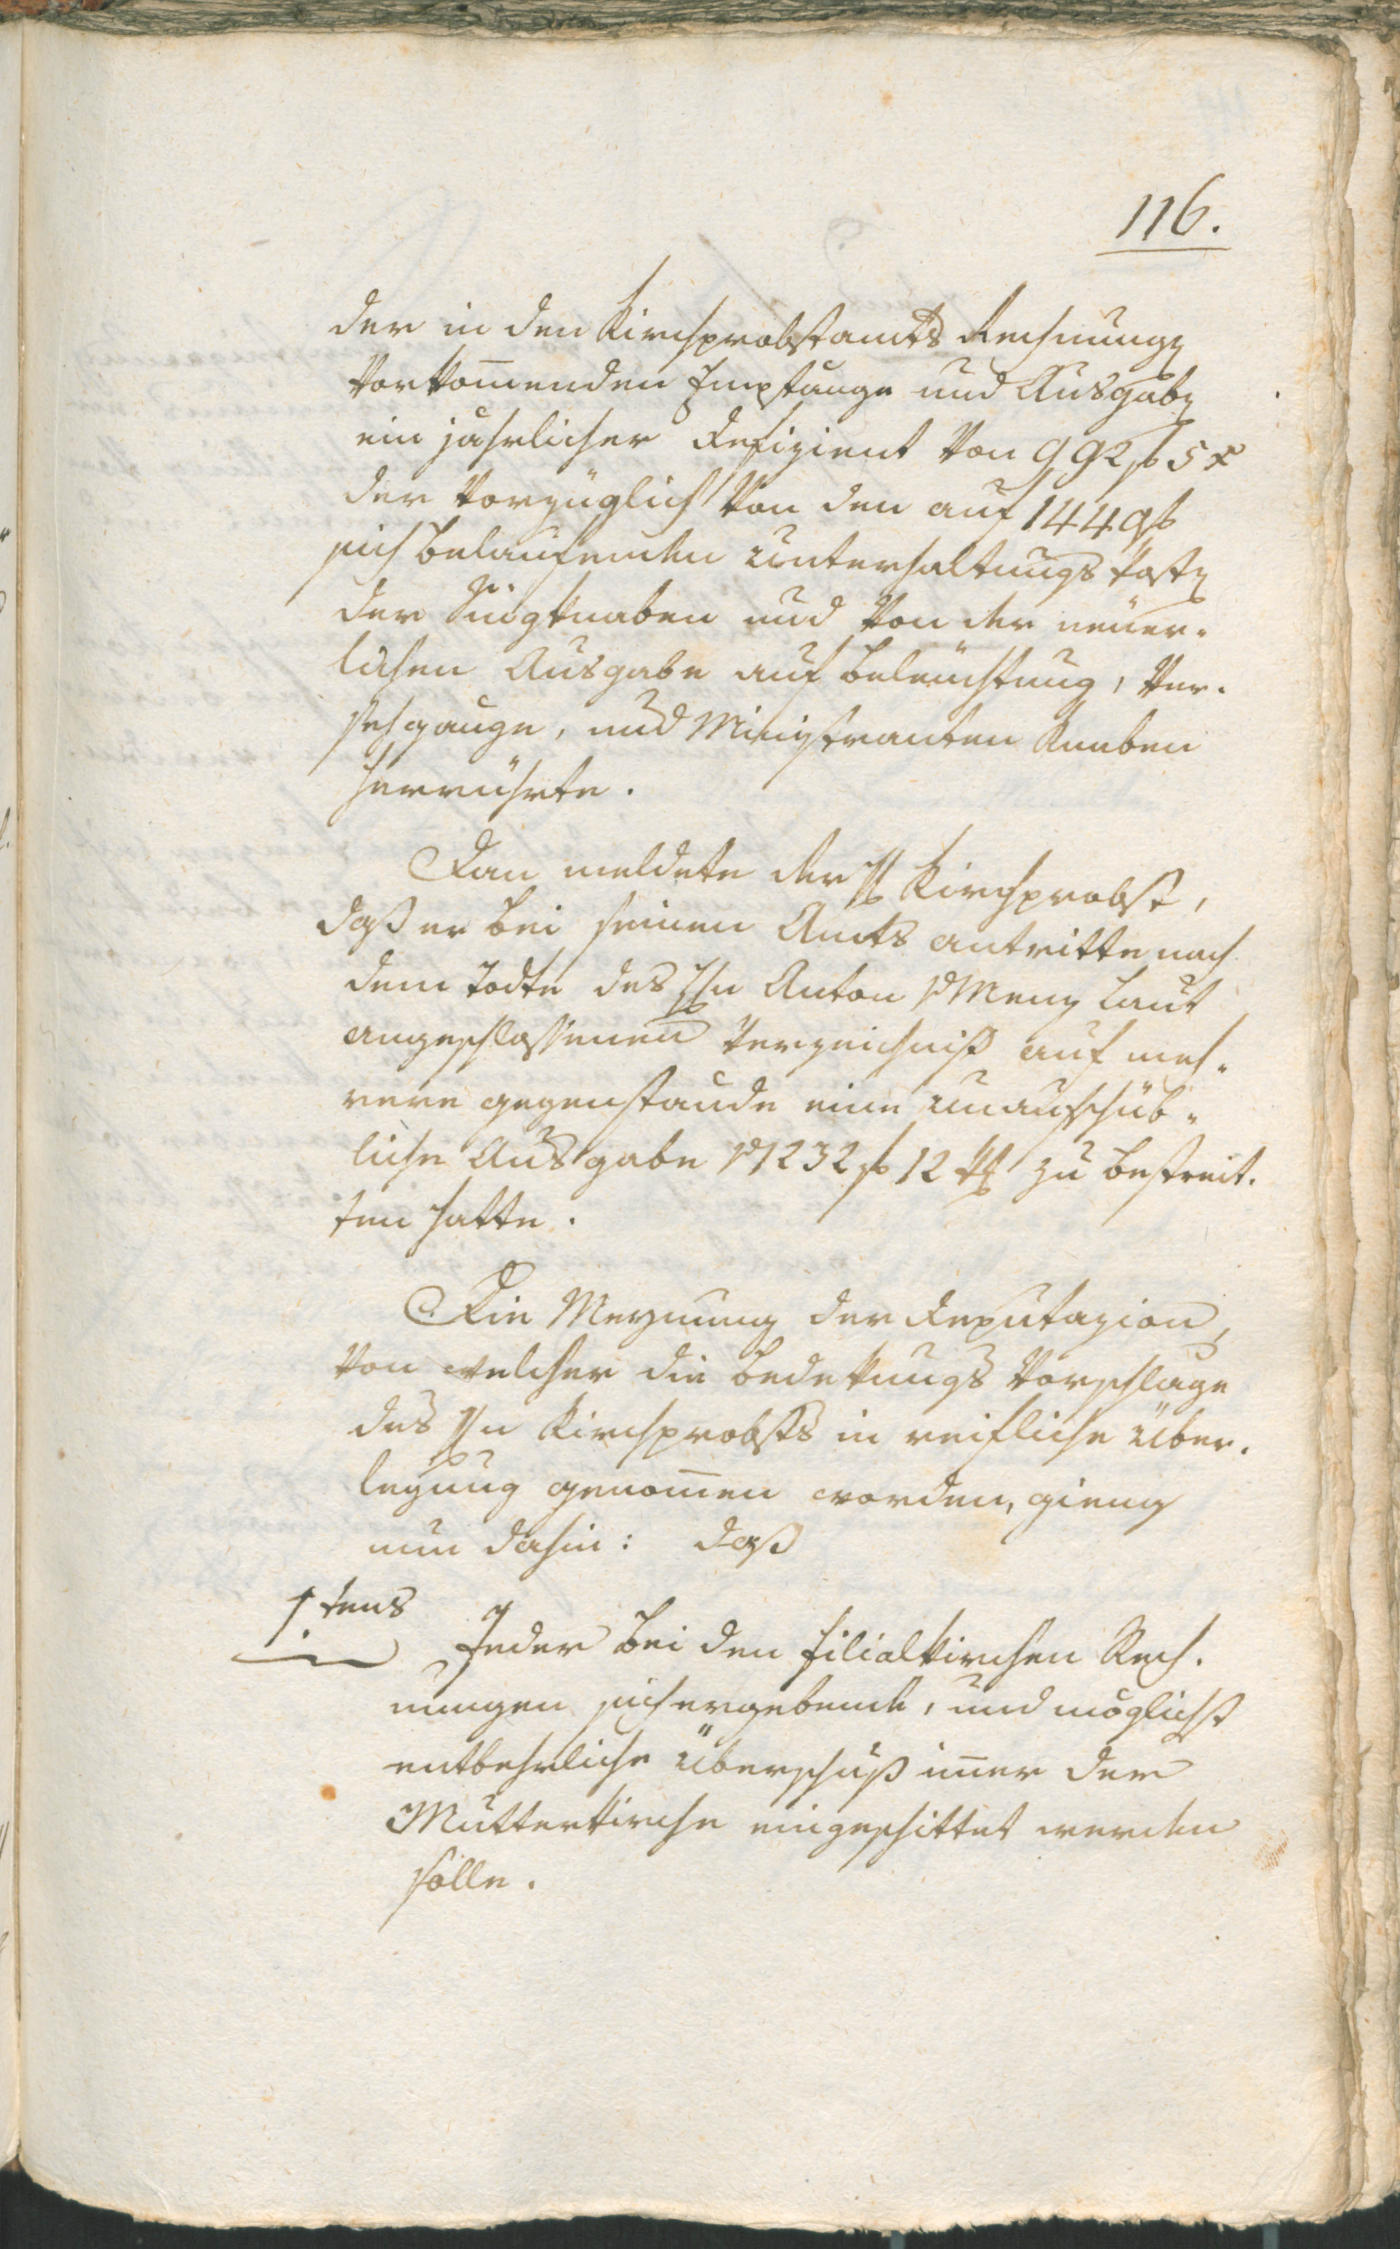 116.
der in den Kirchprobstamts Rechnungen
vorkom̅enden Empfange und Ausgaben
ein jahrlicher Defizient von 992 f 5 x
der vorzüglich von den auf 1449 f
sich belaufenden Unterhaltungs kosten
der Singknaben und von der neuer-
lichen Ausgabe auf Beleuchtung, Ver-
sehgange, und Ministranten Knaben
herrührte.
Dan meldete der H Kirchprobst,
daß er bei seinem Amts antritte nach
dem Todte des Hn Anton v Menz laut
angeschlossenen Verzeichniß auf meh-
rere gegenstande eine unaufschüb-
liche Ausgabe v 1232 f 12 xr zu bestreit-
ten hatte.
Die Meynung der Deputazion,
von welcher die bedekungs Vorschlage
des Hn Kirchprobsts in reifliche Über-
legung genom̅en worden, gieng
nun dahin: daß
1tens
Jeder bei den filialkirchen Rech-
nungen sich ergebende, und möglichst
entbehrliche Überschuß im̅er der
Mutterkirche eingeschittet werden
solle.